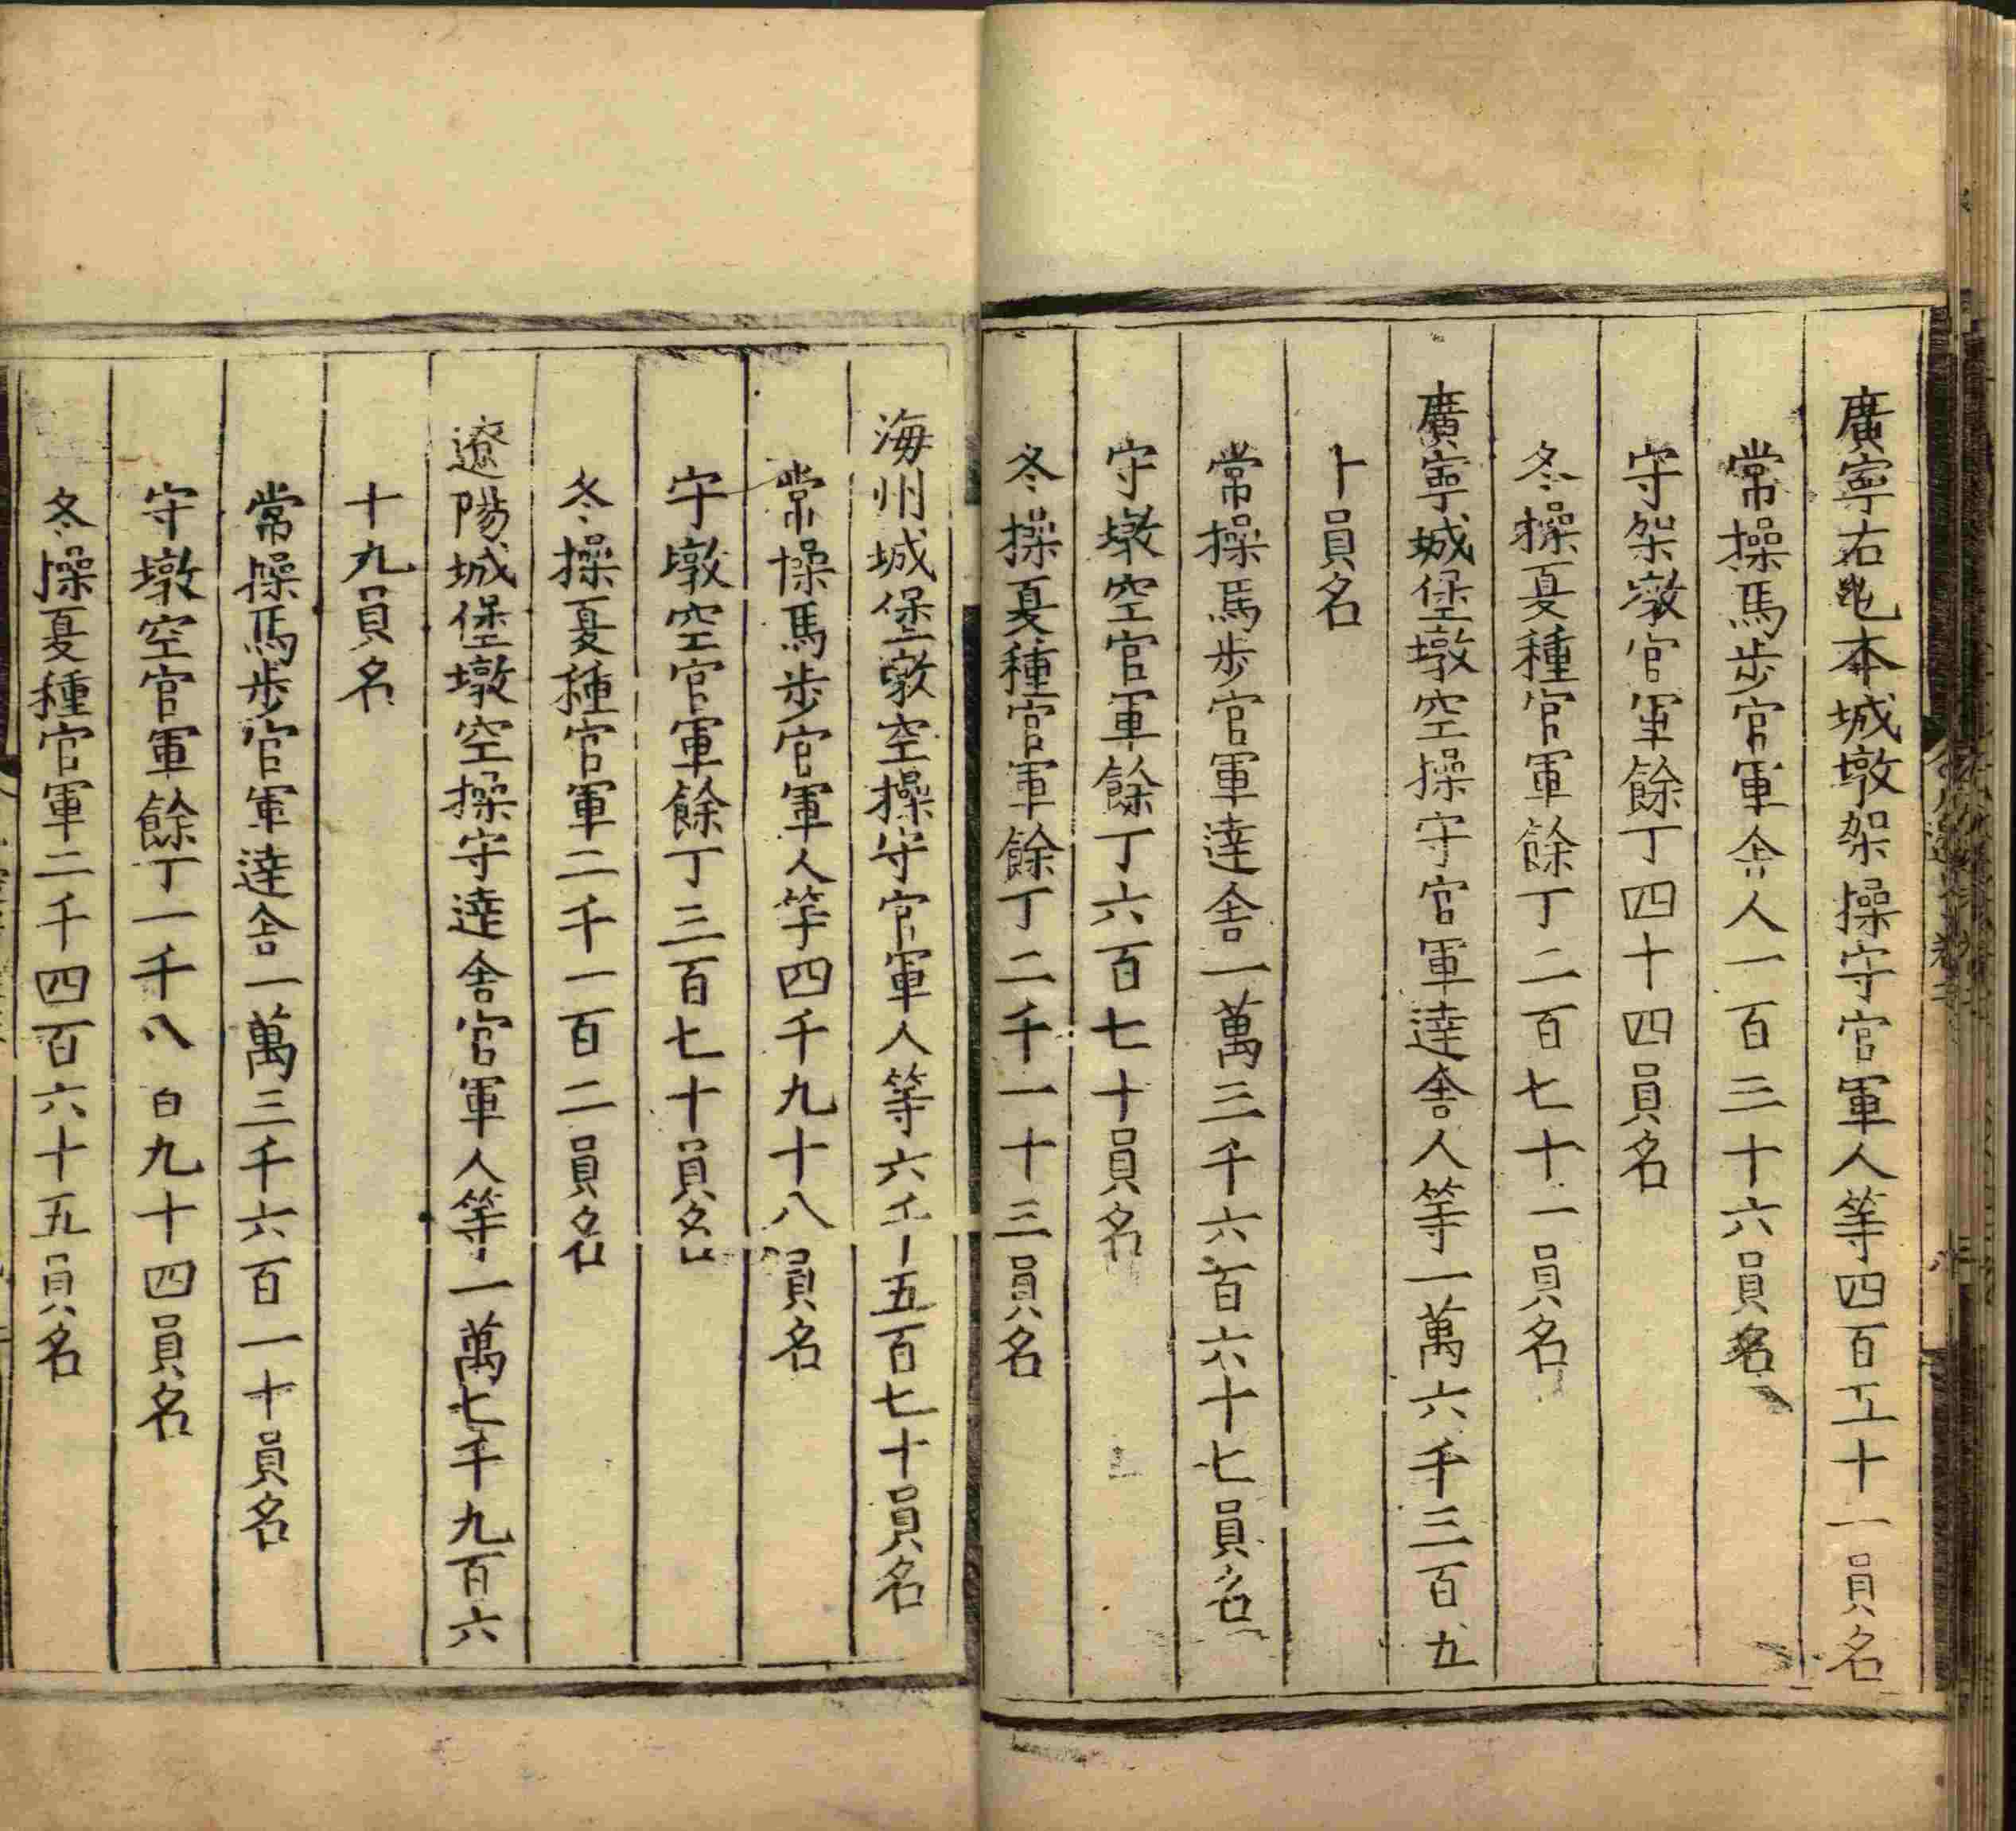 廣寧右屯本城墩架操守官軍人等四百五十一員名
常操馬步官軍舍人一百三十六員名
守架墩官軍餘丁四十四員名
冬操夏種官軍餘丁二百七十一員名
廣寧城堡墩空操守官軍達舍人等一萬六千三百五
十員名
常操馬步官軍達舍一萬三千六百六十七員名
守墩空官軍餘丁六百七十員名
冬操夏種官軍餘丁二千一十三員名
海州城堡墩空操守官軍人等六千五百七十員名
常操馬步官軍人等四千九十八員名
守墩空官軍餘丁三百七十員名
冬操夏種官軍二千一百二員名
遼陽城堡墩空操守達舍官軍人等一萬七千九百六
十九員名
常操馬步官軍達舍一萬三千六百一十員名
守墩空官軍餘丁一千八百九十四員名
冬操夏種官軍二千四百六十五員名